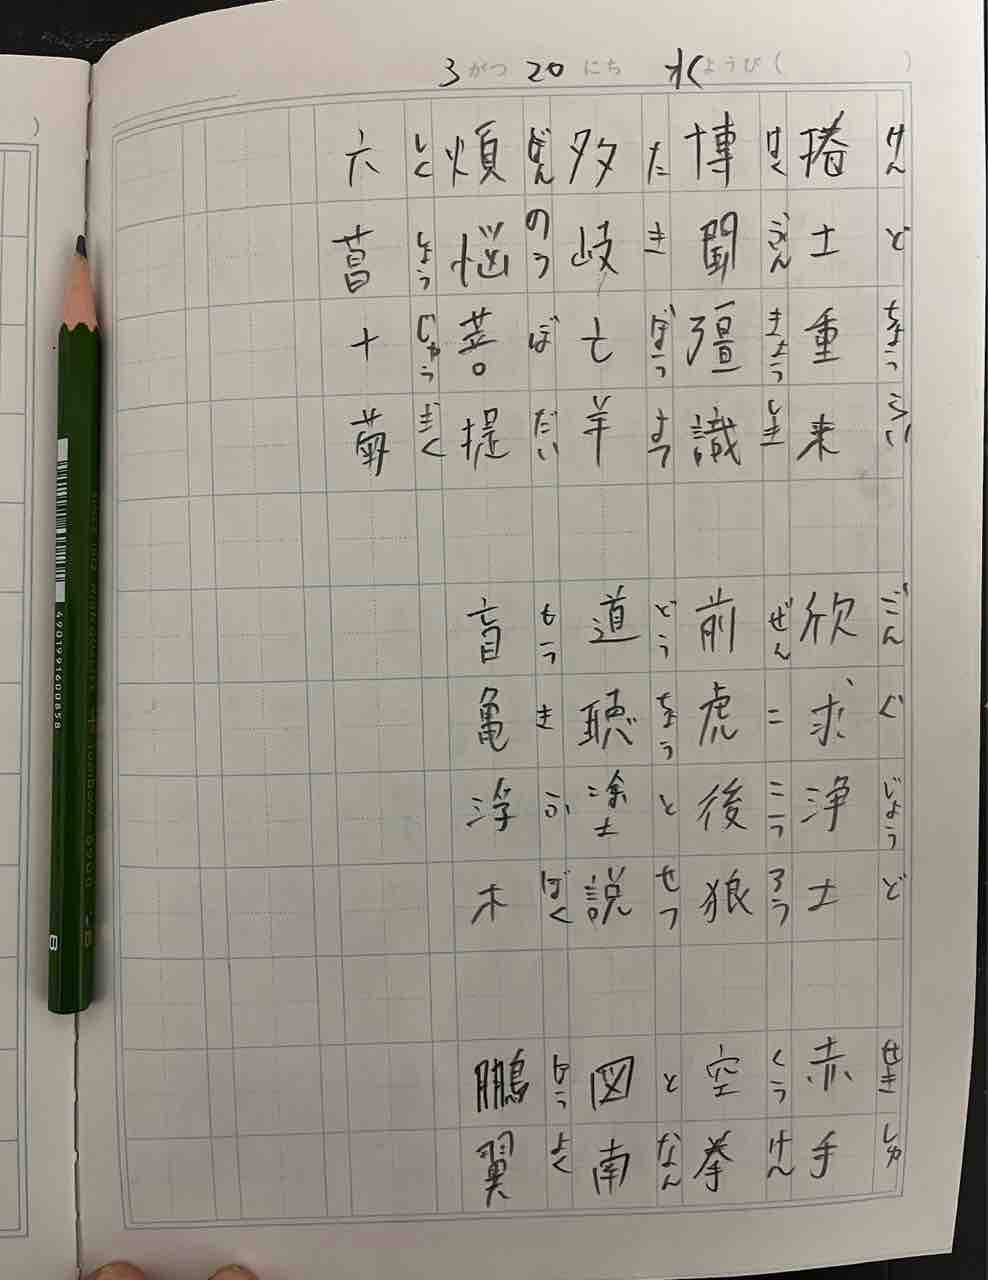 3 がつ 20 にち 水ようび ( )
捲土重来 欣求浄土 赤手
けんどちょうらい ごんぐじょうど せきしゅ
博聞彊識 前虎後狼 空拳
はくぶんきょうしき ぜんここうろう くうけん
多岐亡羊 道聴塗説 図南
たきぼうよう どうちょうとせつ となん
煩悩菩提 盲亀浮木 鵬翼
ぼんのうぼだい もうきふぼく ほうよく
六菖十菊
りくしょうじゅうぎく
4901991600858
B